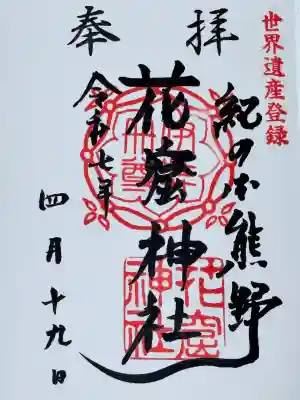 世界遺産登録
奉拝
紀の国熊野
花窟神社
令和七年
四月十九日
花窟
神社